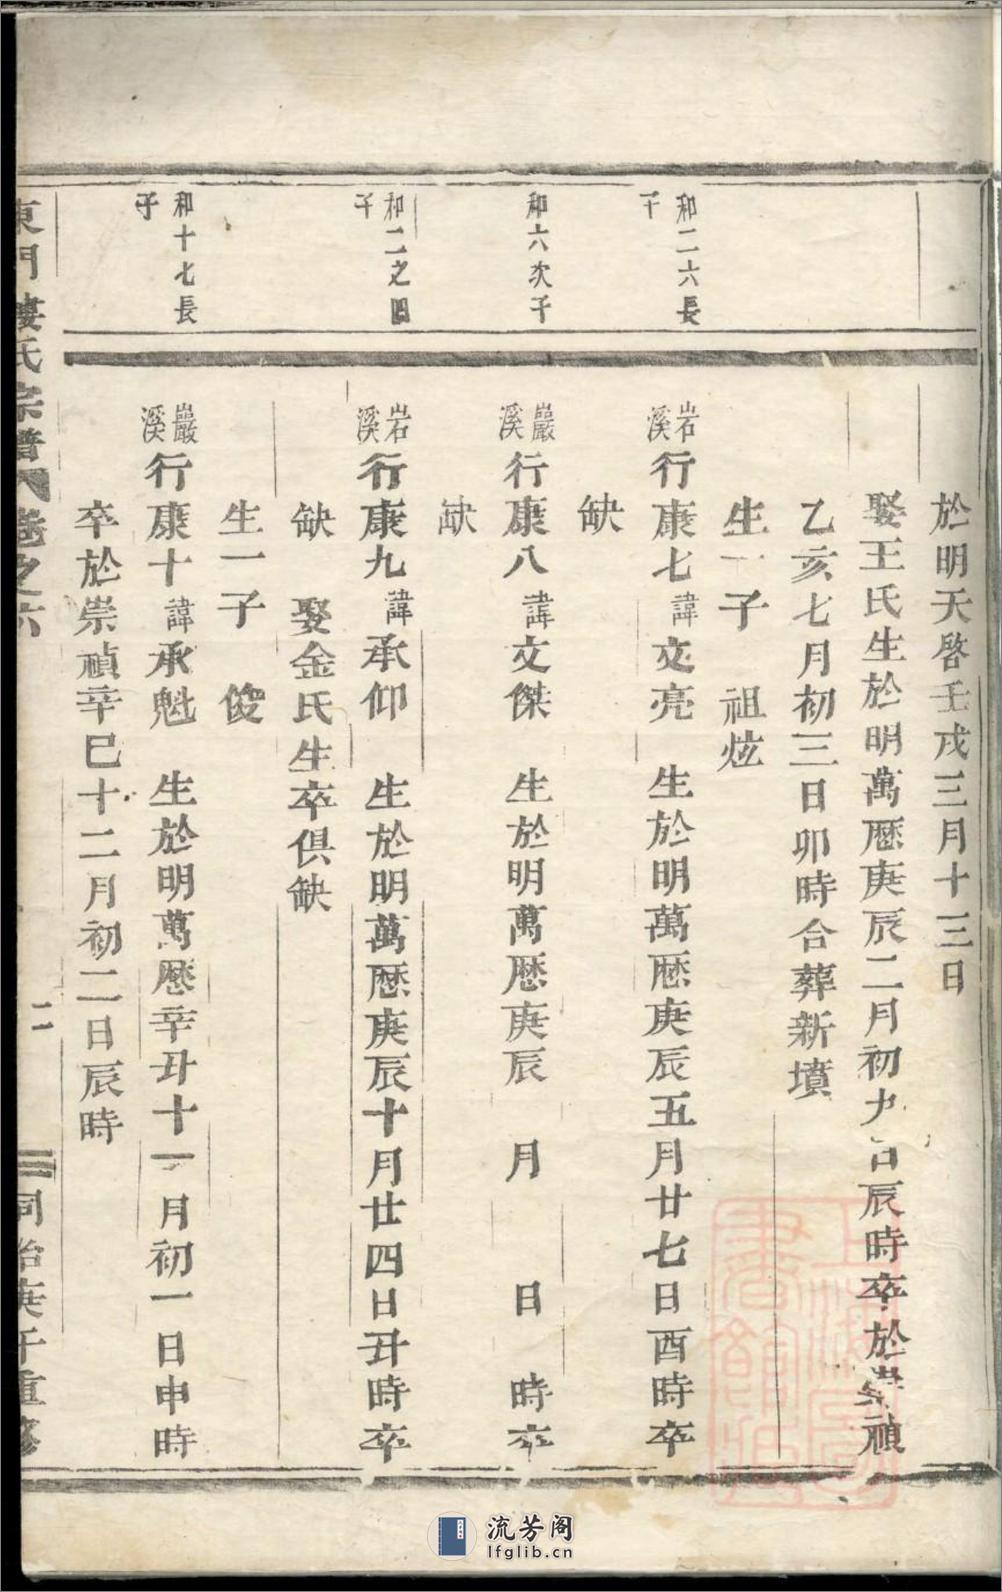 和二六長
子
和六次子
和二之四
子
和十七長
子
於明天啓壬戌三月十三日
娶王氏生於明萬曆庚辰二月初九日辰時卒於崇禎
乙亥七月初三日卯時合葬新墳
生一子 祖炫
岩溪行康七諱文亮 生於明萬曆庚辰五月廿七日酉時卒
缺
巖溪行康八諱文傑 生於明萬曆庚辰 月 日 時卒
缺
岩溪行康九諱承仰 生於明萬曆庚辰十月廿四日丑時卒
缺 娶金氏生卒俱缺
生一子 俊
巖溪行康十諱承魁 生於明萬曆辛丑十一月初一日申時
卒於崇禎辛巳十二月初二日辰時
東門婁氏宗譜 卷之六 二 同治庚午重修
上海圖書館藏
流芳阁
lfglib.cn